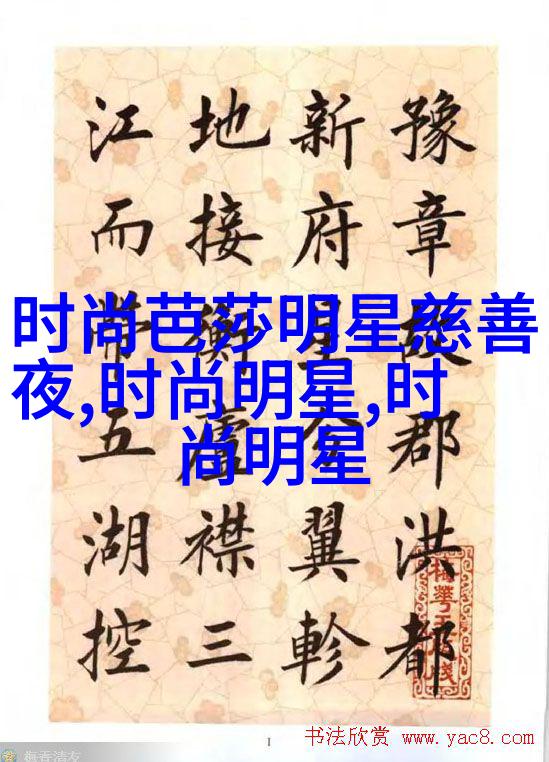 豫章故郡洪都
新府星分翼軫
地接衡廬襟三
江而帶五湖控
时尚芭莎明星慈善
夜,时尚明星,时
尚明星
1
书法欣赏 www.yac8.com
梅香清友